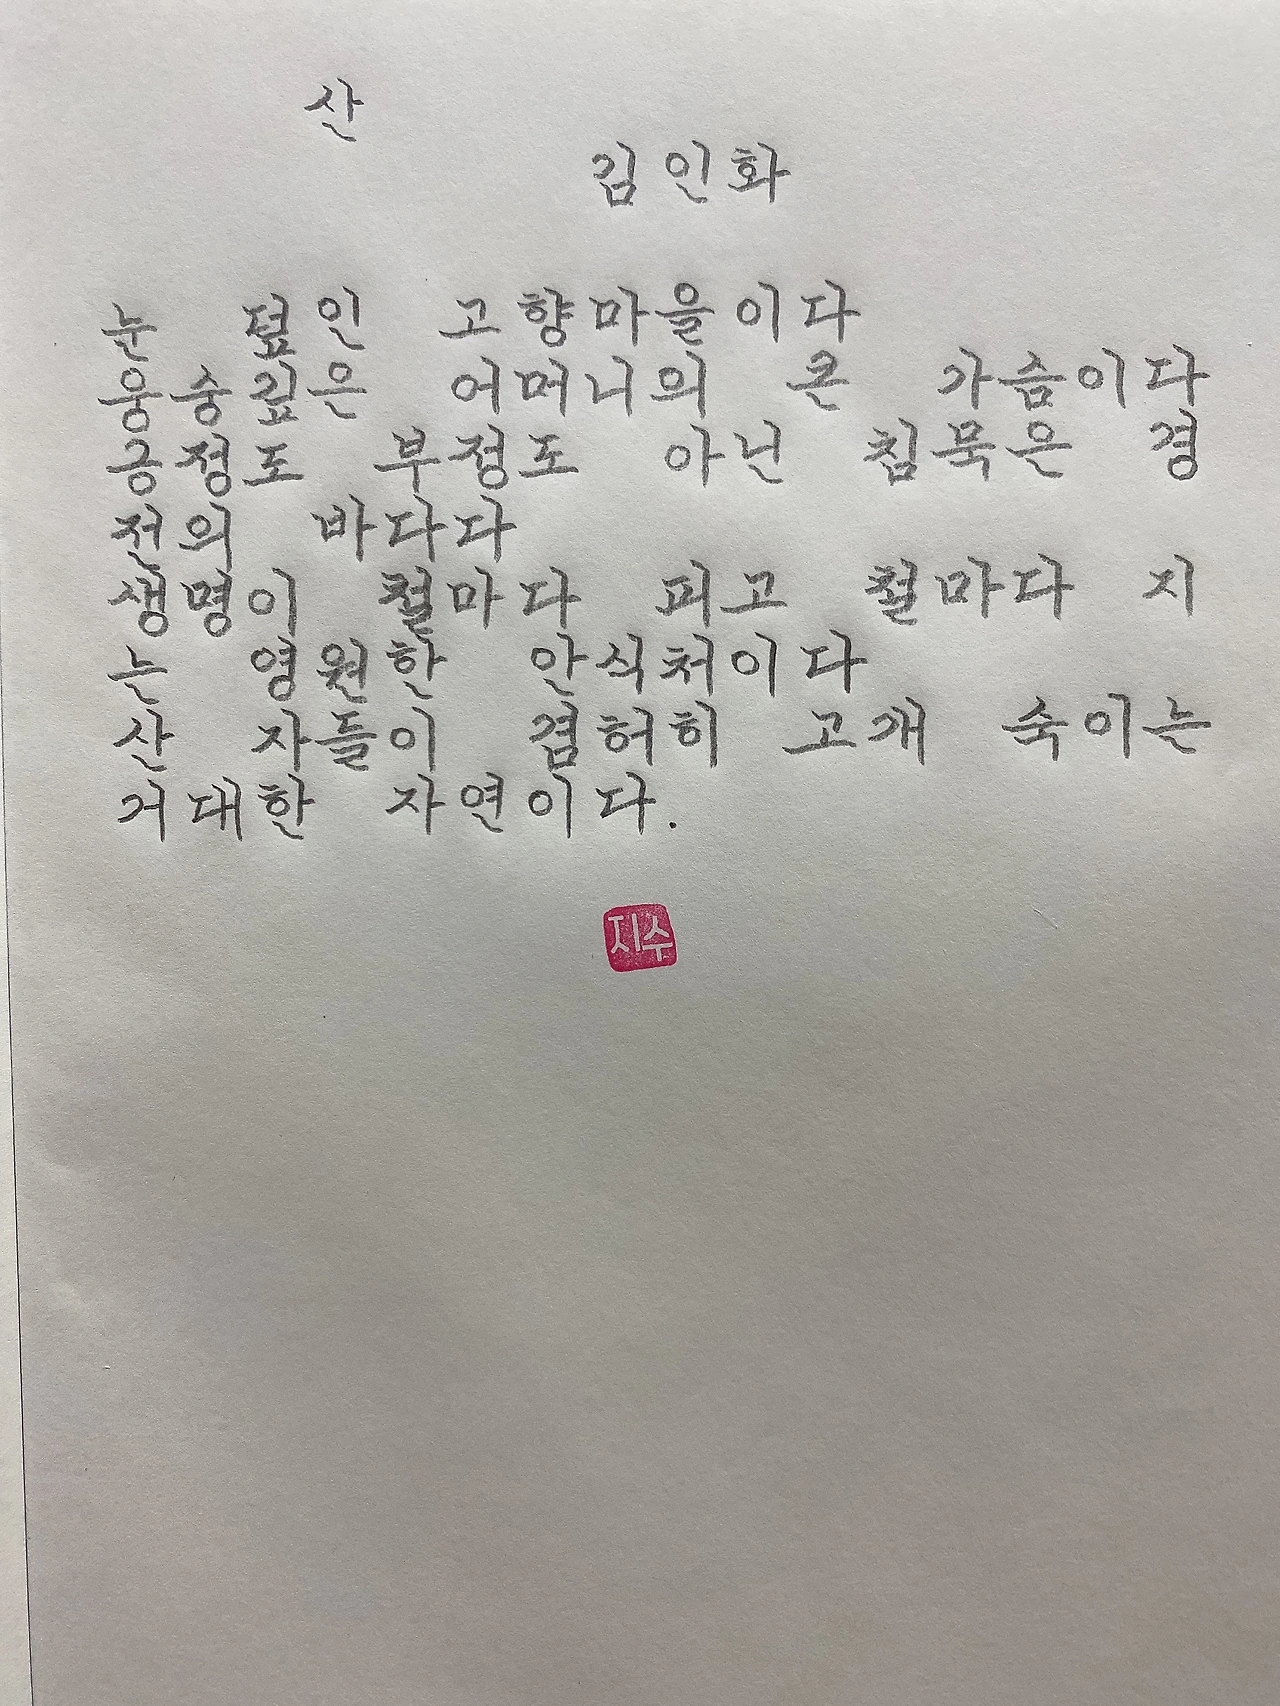 산
김인화
눈 덮인 고향마을이다
웅숭깊은 어머니의 큰 가슴이다
긍정도 부정도 아닌 침묵은 경
전의 바다다
생명이 철마다 피고 철마다 지
는 영원한 안식처이다
산 자들이 겸허히 고개 숙이는
거대한 자연이다.
지수